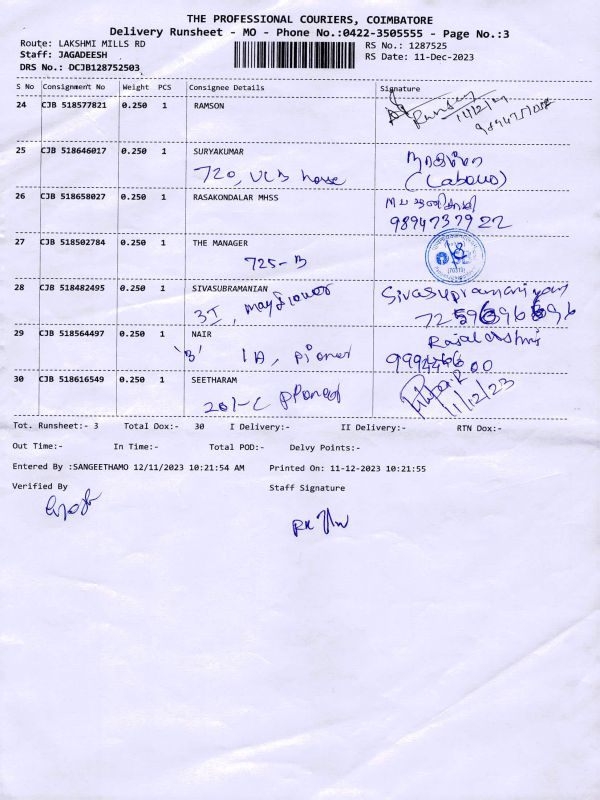 THE PROFESSIONAL COURIERS, COIMBATORE
Delivery Runsheet - MO - Phone No.:0422-3505555 - Page No.:3
Route: LAKSHMI MILLS RD RS No.: 1287525
Staff: JAGADEESH RS Date: 11-Dec-2023
DRS No.: DCJB128752503
S No Consignment No Weight PCS Consignee Details Signature
24 CJB 518577821 0.250 1 RAMSON
25 CJB 518646017 0.250 1 SURYAKUMAR
720, VCB house (Labour)
26 CJB 518658027 0.250 1 RASAKONDALAR MHSS
9894737922
27 CJB 518502784 0.250 1 THE MANAGER
725-B
28 CJB 518482495 0.250 1 SIVASUBRAMANIAN Sivasupramaniyam
3I, mayflower
29 CJB 518564497 0.250 1 NAIR
'B' 1A, pioneer
30 CJB 518616549 0.250 1 SEETHARAM
201-C pioneer 11/12/23
Tot. Runsheet:- 3 Total Dox:- 30 I Delivery:- II Delivery:- RTN Dox:-
Out Time:- In Time:- Total POD:- Delvy Points:-
Entered By :SANGEETHAMO 12/11/2023 10:21:54 AM Printed On: 11-12-2023 10:21:55
Verified By Staff Signature